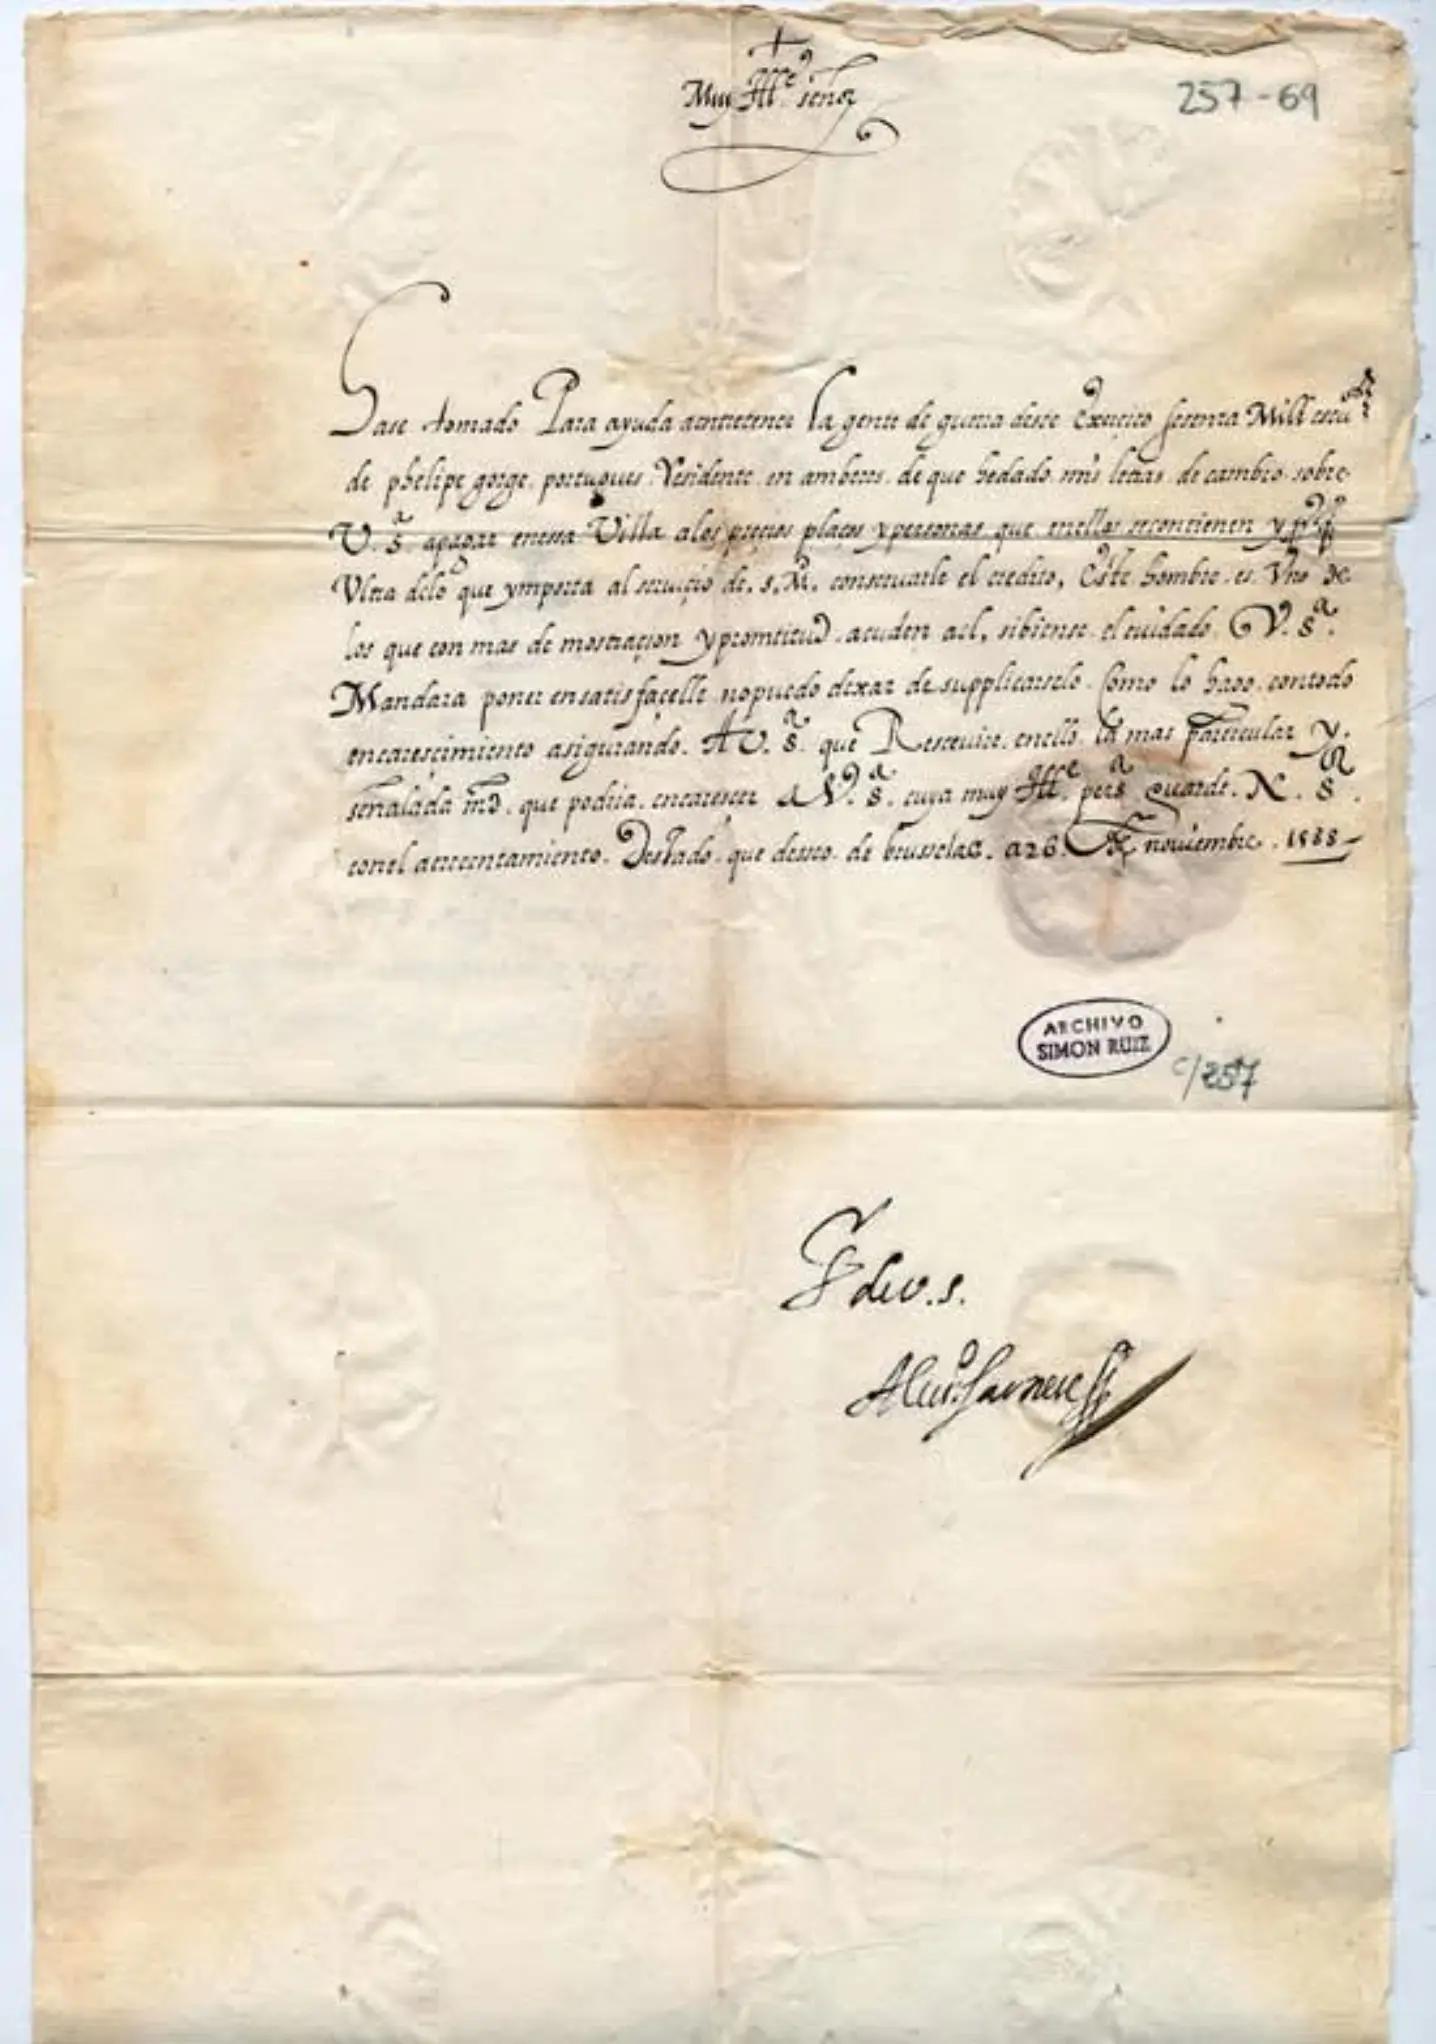 +
Muy Ille señor
257-69
Hase tomado Para ayuda aentretener la gente de guerra deste Exerçito setenta Mill escu^os
de phelipe gorge portugues Residente en amberes de que hedado mis letras de cambio sobre
V. S.ª apagar enessa Villa alos preçios plaços ypersonas que enellas secontienen y
Vltra delo que ymporta al seruiçio de. s. M. conseruarle el credito, Este hombre es Vno De
los que con mas demostraçion ypromtitud acuden ael, sibiense el cuidado V. S.ª
Mandara poner ensatisfaçelle nopuedo dexar de supplicarselo Como lo hago contodo
encaresçimiento asigurando. A V. S.ª que Resceuire enello la mas particular y.
señalada md. que podria encarescer a V. S.ª cuya muy Ille pers.ª guarde N. S.R
conel acrecentamiento. Destado que desseo de brusselas. a26. De nouiembre. 1588
ARCHIVO
SIMON RUIZ
c/257
S deV.S.
Alexº farnese